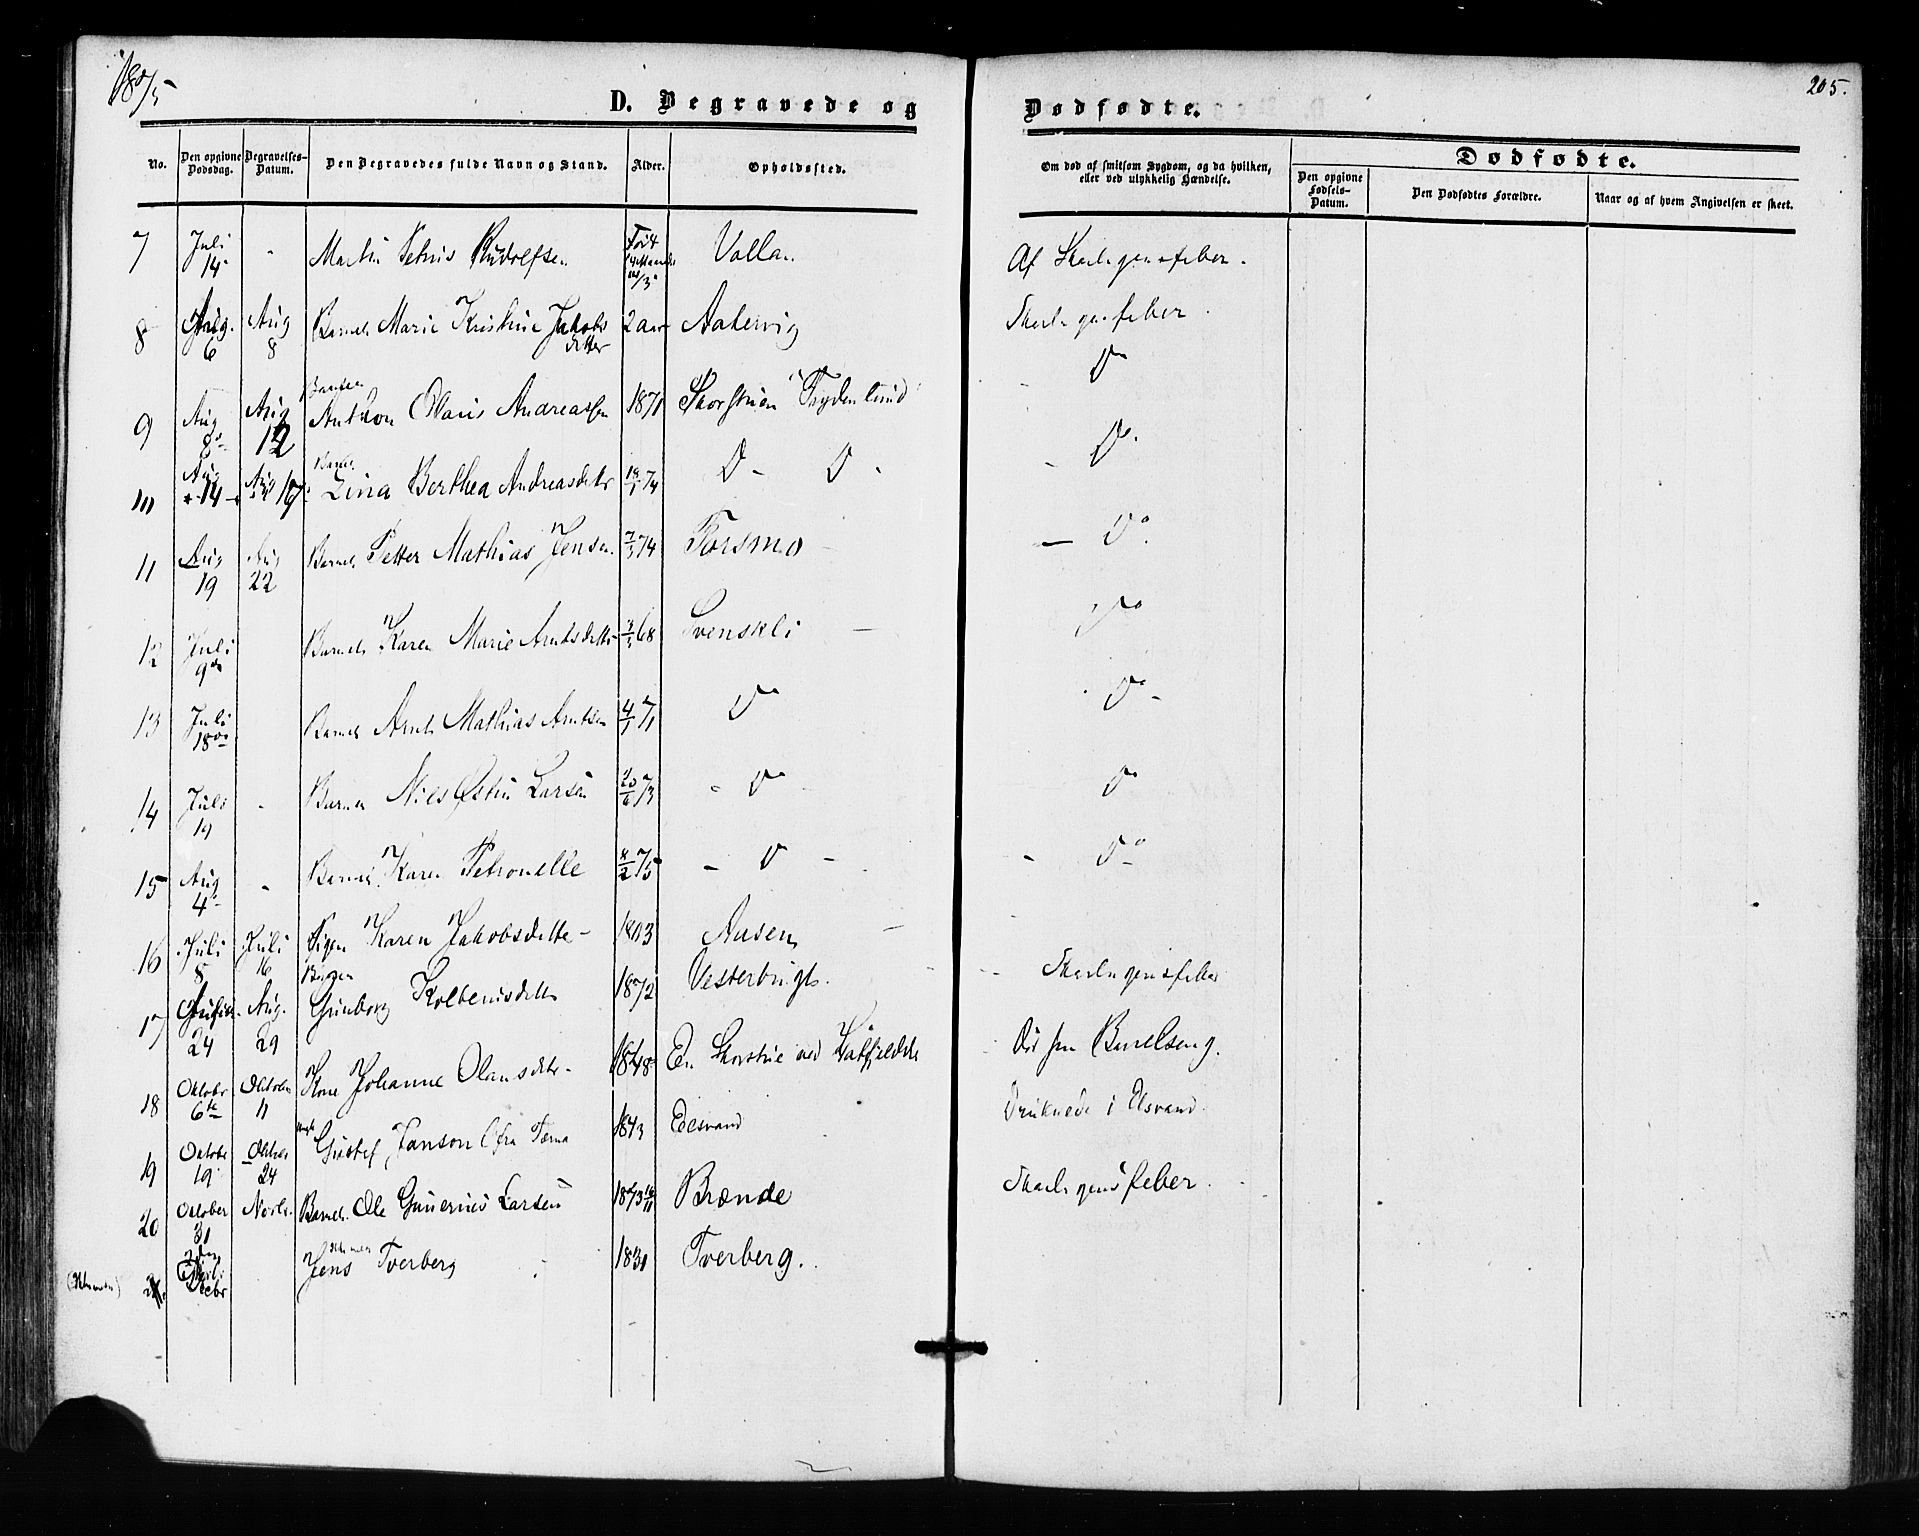 1875
205.
D. Begravede og Dødfødte.
No. Den opgivne Dødsdag. Begravelses-Datum. Den Begravedes fulde Navn og Stand. Alder. Opholdssted. Om død af smitsom Sygdom, og da hvilken, eller ved ulykkelig Hændelse. Dødfødte.
Den opgivne Fødsels-Datum. Den Dødfødtes Forældre. Naar og af hvem Angivelsen er skeet.
7 Juli 14 Martin Petrus Rudolfsen Af Skarlagensfeber.
8 Aug. 6 Aug 8 Barnet Marie Kristine Jakobsdtter 2 aar Skarlagensfeber.
9 Aug 8 Aug 12 Anthon Olaus Andreassen 1871 Skorstuen Frydenlund Do
10 Aug 14 Aug 17 Barnet Lina Berthea Andreasdtr 74 D - D - Do.
11 Aug 19 Aug 22 Barnet Petter Mathias Jensen 74 Forsmo - Do.
12 Juli 9de Barnet Karen Marie Arntsdtter 68 Svenskli - Do
13 Juli 18de Barnet Arnt Mathias Arntsen 4/1 71 Do Do -
14 Juli 19 Barnet Nils Østin Larsen 20/6 73 - Do Do
15 Aug 4 Barnet Karen Petronelle 8/2 75 - D - - Do
16 Juli 8 Juli 16 Pigen Karen Jakobsdtte - 1803 Ausen -
17 24 Aug. 29 Gunborg 1872 Vesterbugt. Skarlagensfeber
18 Oktobr 6te Oktober 11 Kone Johanne Olausdtr - 1848 En Skorstue ved Død paa Barselseng.
19 Oktobe 19 Oktober 24 Gustaf Janson fra Tærna 1843 Elsvand Druknede i Elsvand.
20 October 31 Novbr. Barnet Ole Gunerius Larsen 1873 Brænde Skarlagensfeber.
21. Decbr Jens Tverberg 1831 Tverberg.